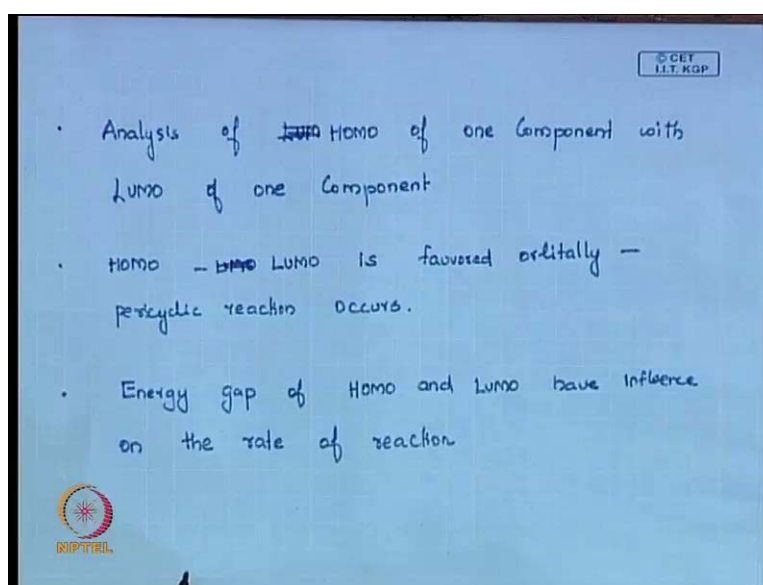 © CET
I.I.T. KGP
• Analysis of HOMO of one Component with
LUMO of one Component
• HOMO - LUMO is favored orbitally -
pericyclic reaction occurs.
• Energy gap of HOMO and LUMO have influence
on the rate of reaction
NPTEL